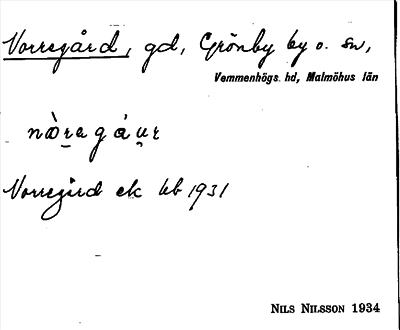 Norregård, gd, Grönby by o. sn,
Vemmenhögs hd, Malmöhus län
nòregáur
Norregård ek kb 1931
NILS NILSSON 1934